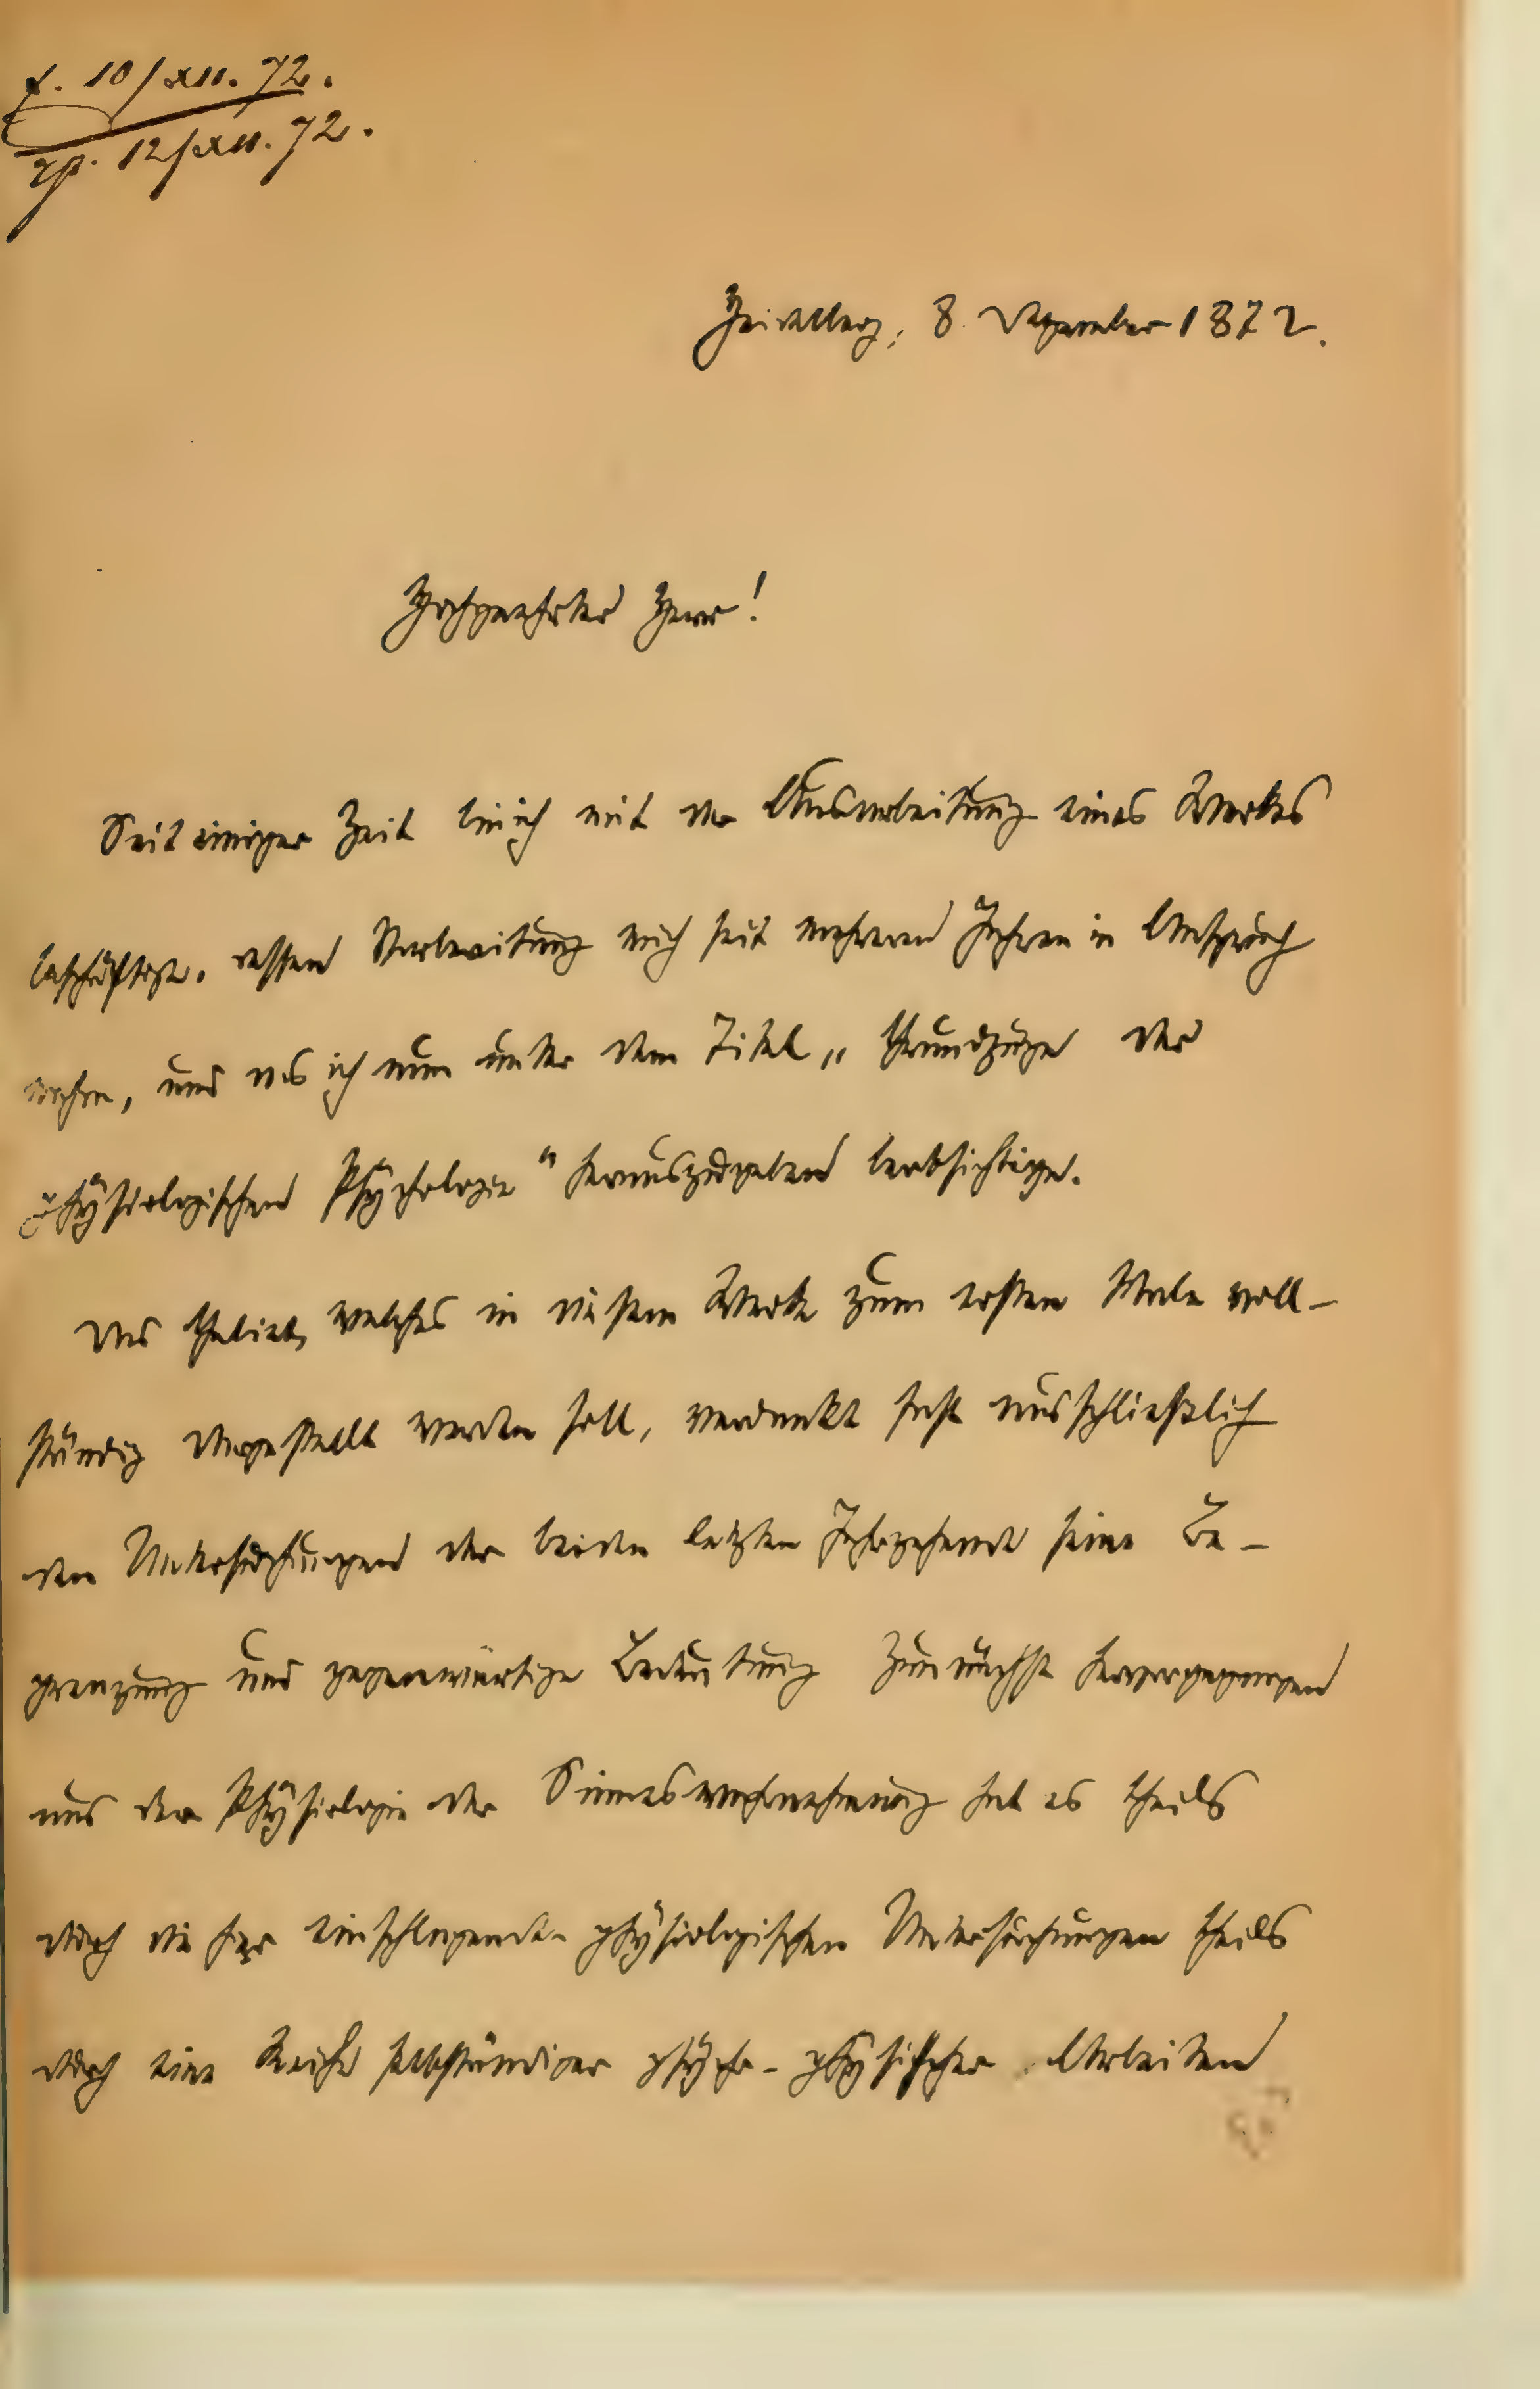 10/XII. 72.
12/XII. 72.
Heidelberg, 8. Dezember 1872.
Hochgeehrter Herr!
Seit einiger Zeit bin ich mit der Ausarbeitung eines Werkes
beschäftigt, dessen Vorbereitung mich seit mehreren Jahren in Anspruch
nahm, und das ich nun unter dem Titel „Grundzüge der
physiologischen Psychologie“ herauszugeben beabsichtige.
Das Gebiet, welches in diesem Werke zum ersten Male voll-
ständig dargestellt werden soll, verdankt fast ausschließlich
den Untersuchungen der beiden letzten Jahrzehnte seine Be-
grenzung und gegenwärtige Bedeutung. Zunächst hervorgegangen
aus der Physiologie der Sinneswahrnehmung hat es theils
durch die hier einschlagenden physiologischen Untersuchungen theils
durch eine Reihe selbständiger psycho-physischer Arbeiten